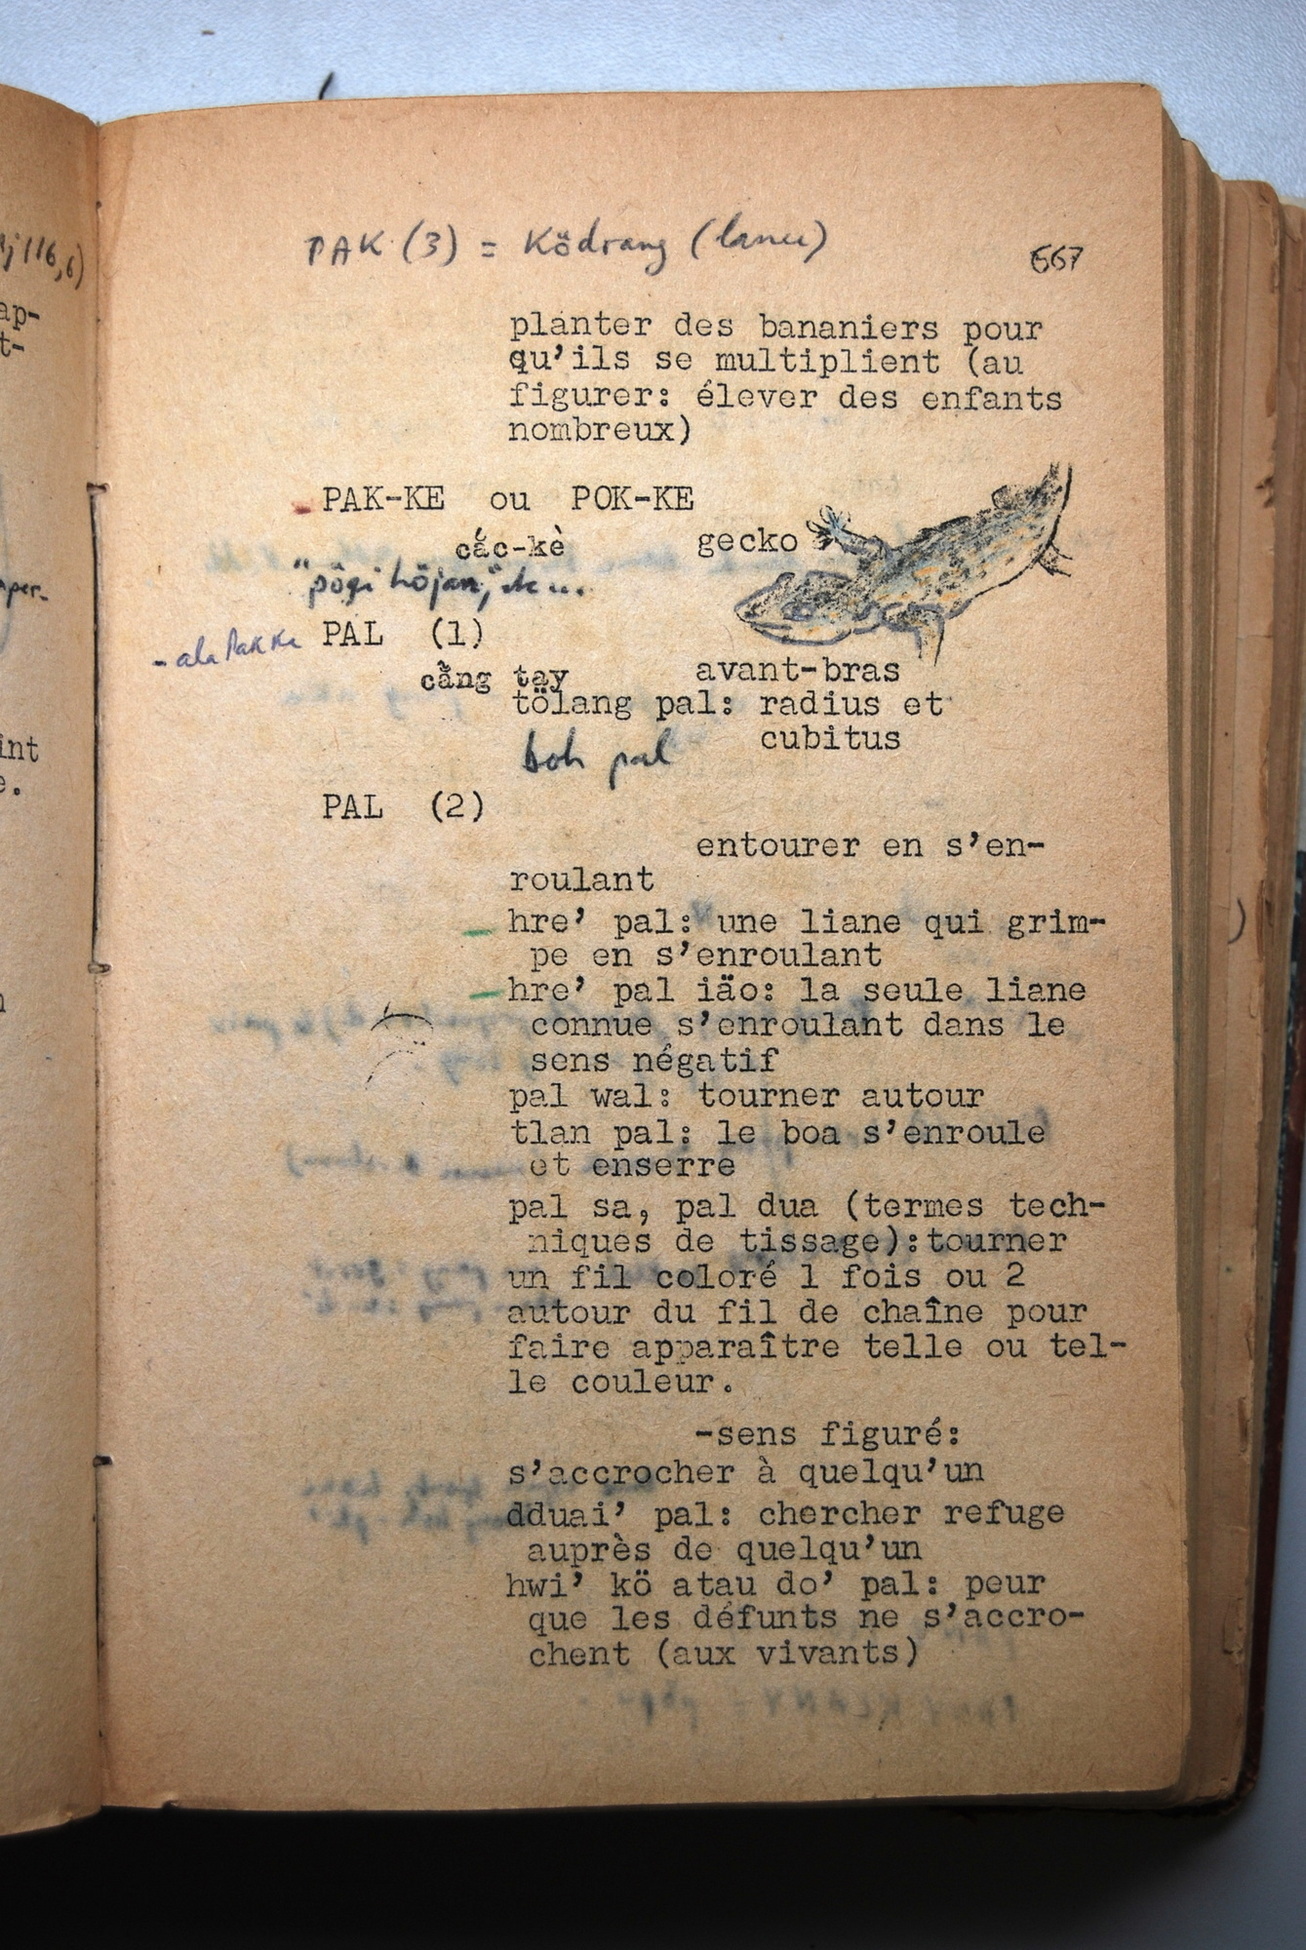 PAK (3) = Ködrang (lance)
667
planter des bananiers pour
qu'ils se multiplient (au
figurer: élever des enfants
nombreux)
PAK-KE ou POK-KE
cắc-kè gecko
"pôgi höjan",
- ala Pakke
PAL (1)
cẳng tay avant-bras
tölang pal: radius et
cubitus
boh pal
PAL (2)
entourer en s'en-
roulant
hre' pal: une liane qui grim-
pe en s'enroulant
hre' pal iäo: la seule liane
connue s'enroulant dans le
sens négatif
pal wal: tourner autour
tlan pal: le boa s'enroule
et enserre
pal sa, pal dua (termes tech-
niques de tissage):tourner
un fil coloré 1 fois ou 2
autour du fil de chaîne pour
faire apparaître telle ou tel-
le couleur.
-sens figuré:
s'accrocher à quelqu'un
dduai' pal: chercher refuge
auprès de quelqu'un
hwi' kö atau do' pal: peur
que les défunts ne s'accro-
chent (aux vivants)